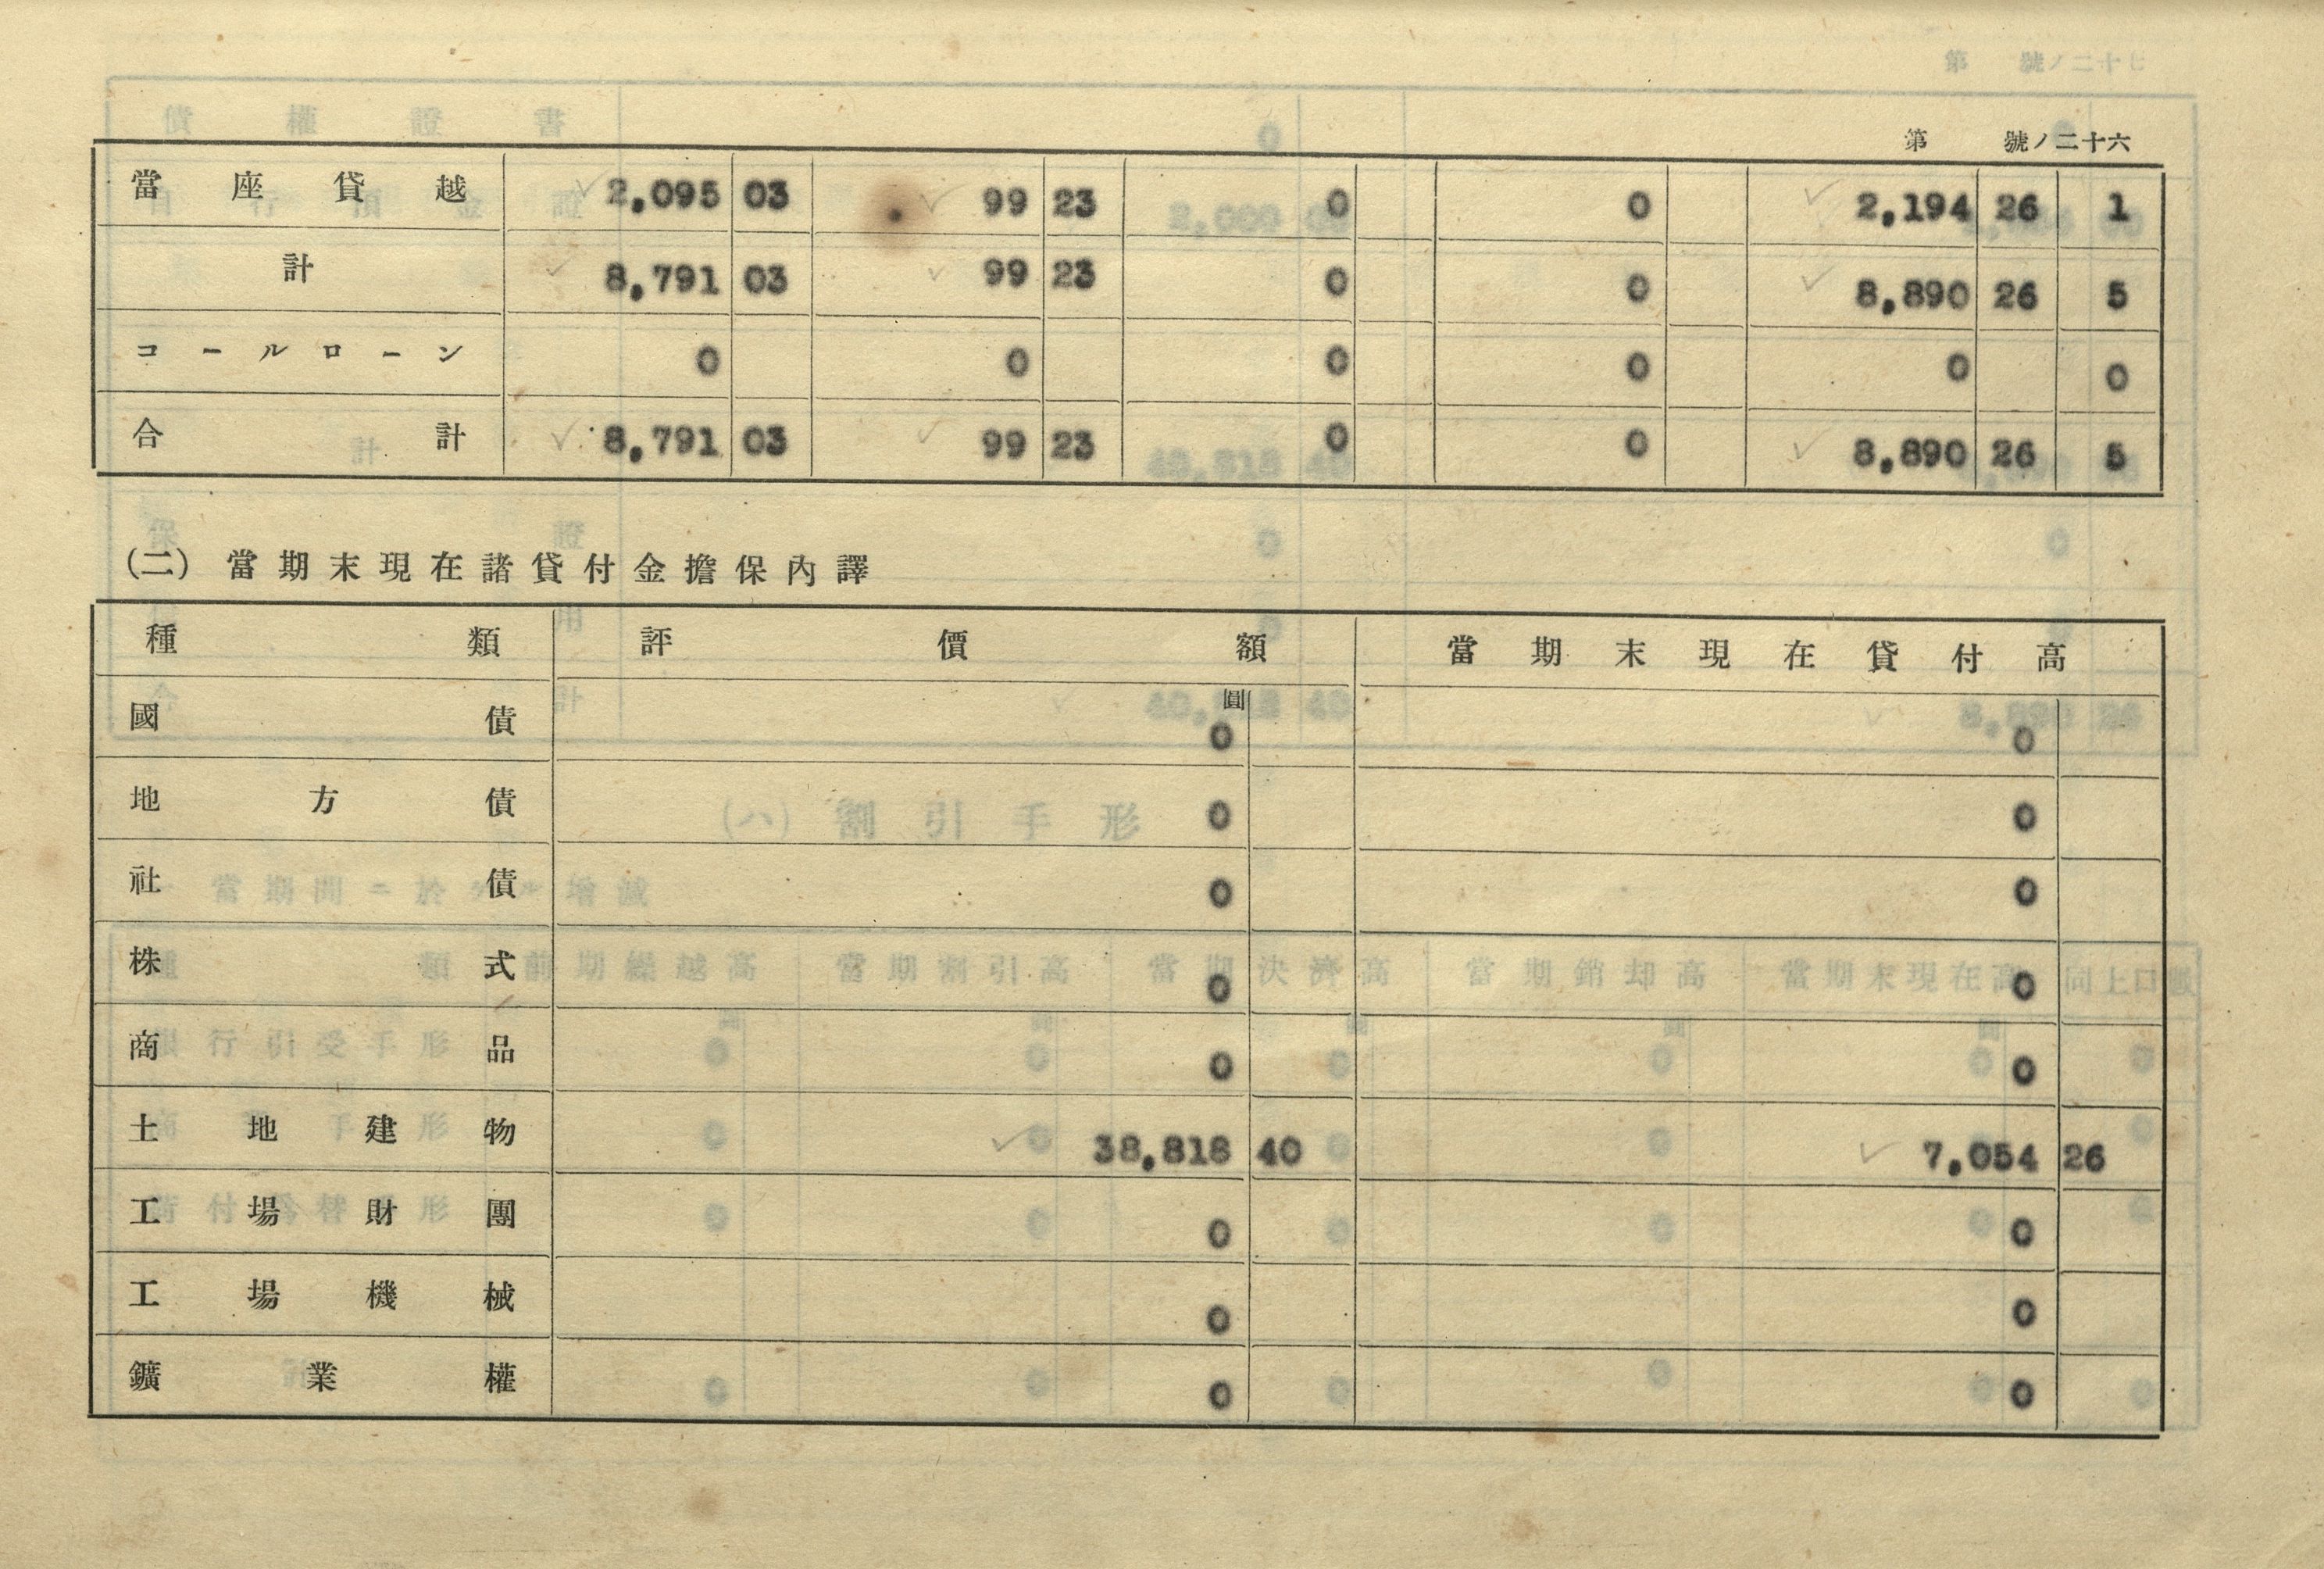 第 號ノ二十六
當座貸越 2,095 03 99 23 0 0 2,194 26 1
計 8,791 03 99 23 0 0 8,890 26 5
コールローン 0 0 0 0 0 0
合計 8,791 03 99 23 0 0 8,890 26 5
(二) 當期末現在諸貸付金擔保內譯
種類 評價額 當期末現在貸付高
圓
國債 0 0
地方債 0 0
社債 0 0
株式 0 0
商品 0 0
土地建物 38,818 40 7,054 26
工場財團 0 0
工場機械 0 0
鑛業權 0 0